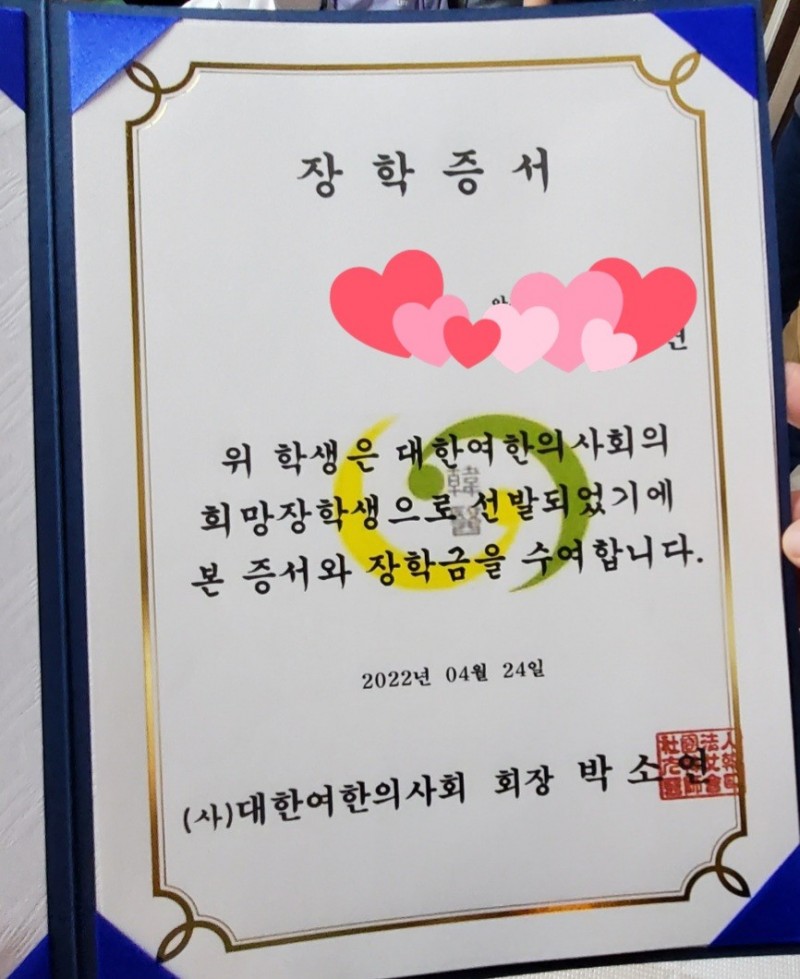 장학증서
위 학생은 대한여한의사회의
희망장학생으로 선발되었기에
본 증서와 장학금을 수여합니다.
2022년 04월 24일
(사)대한여한의사회 회장 박소연
韓醫